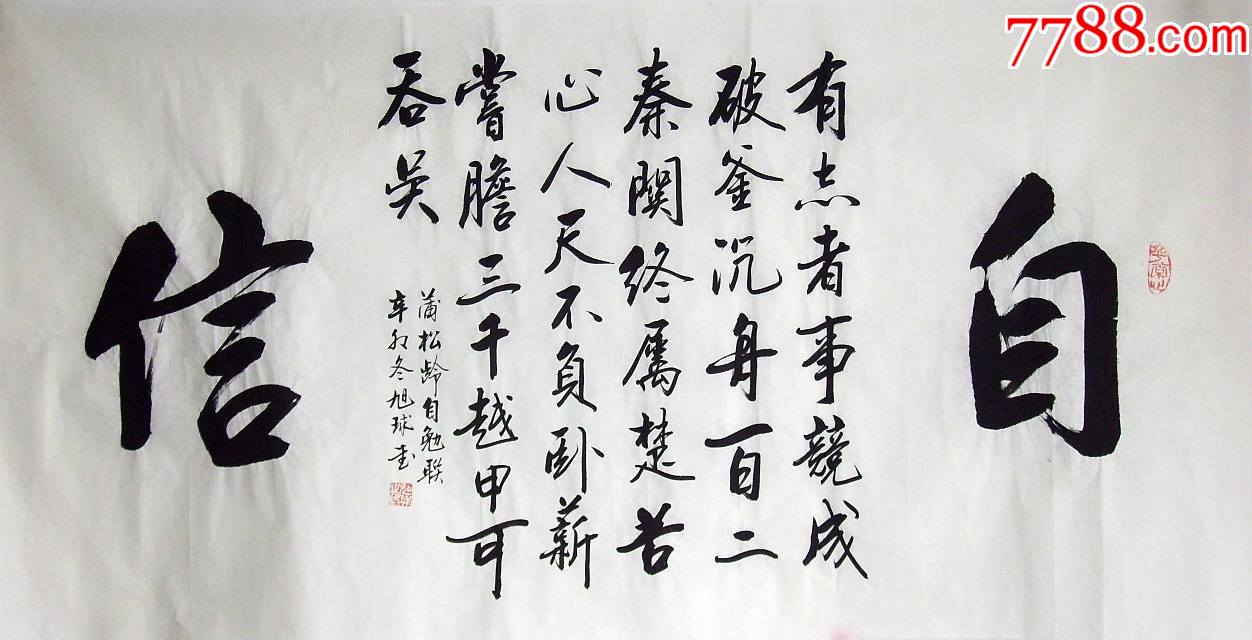 7788.com
自
有志者事競成
破釜沉舟百二
秦関終屬楚苦
心人天不負卧薪
嘗膽三千越甲可
吞吴
蒲松齡自勉联
辛卯冬旭球书
信